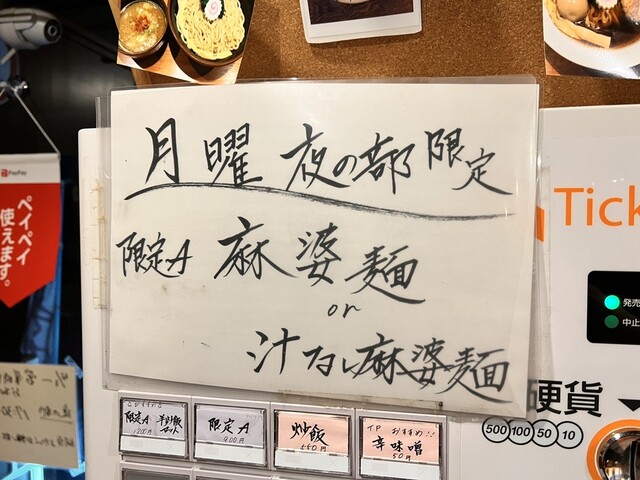 月曜 夜の部 限定
限定A 麻婆麺
or
汁なし麻婆麺
PayPay
ペイペイ
使えます。
Tick
発売
中止
硬貨
500 100 50 10
限定A 半炒飯
セット
限定A
900円
炒飯
550円
TP おすすめ!!
辛味噌
50円